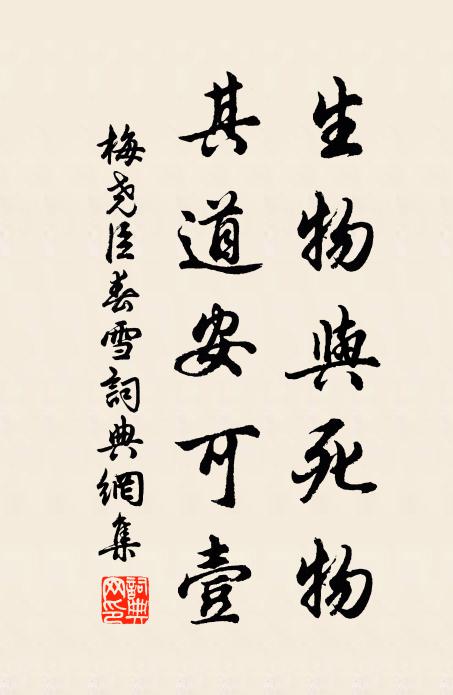 生物與死物
其道安可壹
梅尧臣春雪詞典網集
詞典网印